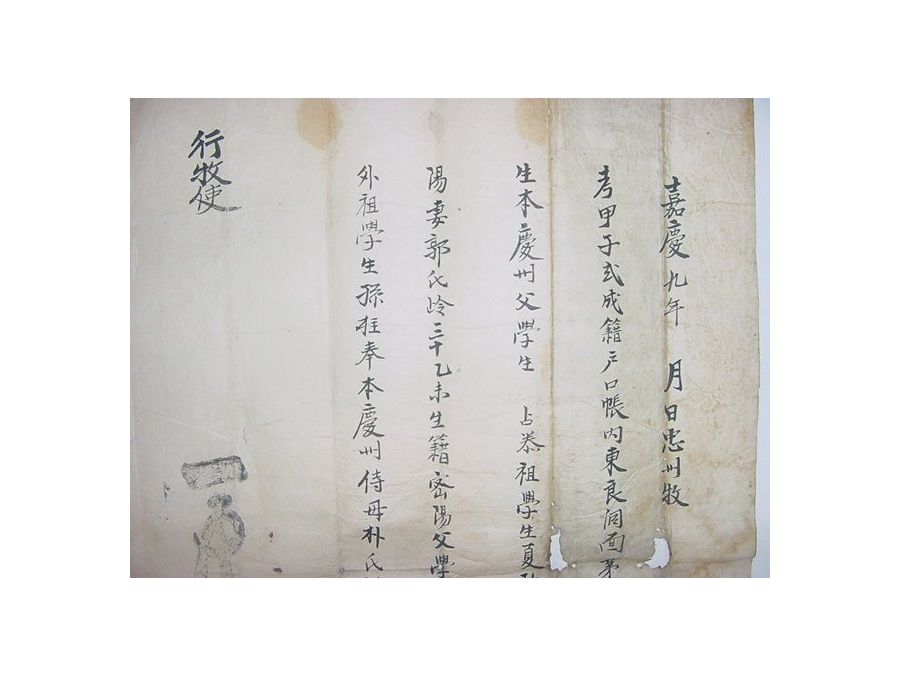 嘉慶九年 月日忠州牧
考甲子式成籍戶口帳內東良洞面第
生本慶州父學生 占恭祖學生夏
陽妻郭氏齡三十乙未生籍密陽父學
外祖學生孫枉奉本慶州侍母朴氏
行牧使